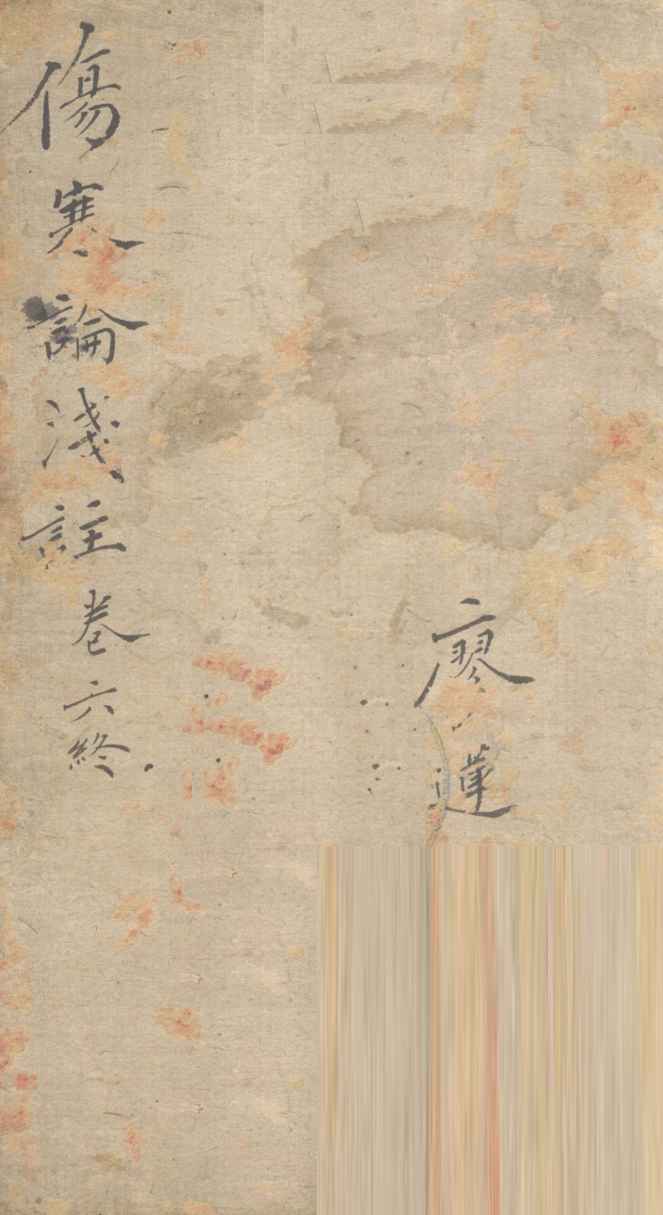 廖蓮
傷寒論淺註卷六終